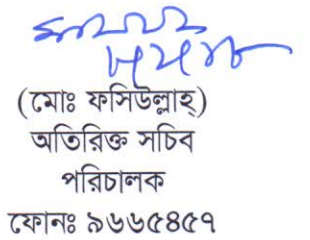 (মোঃ ফসিউল্লাহ্)
অতিরিক্ত সচিব
পরিচালক
ফোনঃ ৯৬৬৫৪৫৭